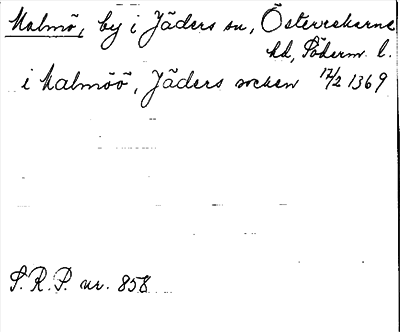 Malmö, by i Jäders sn, Österrekarne
hd, Söderm. l.
i Malmöö, Jäders socken 17/2 1369
S.R.P. nr. 858